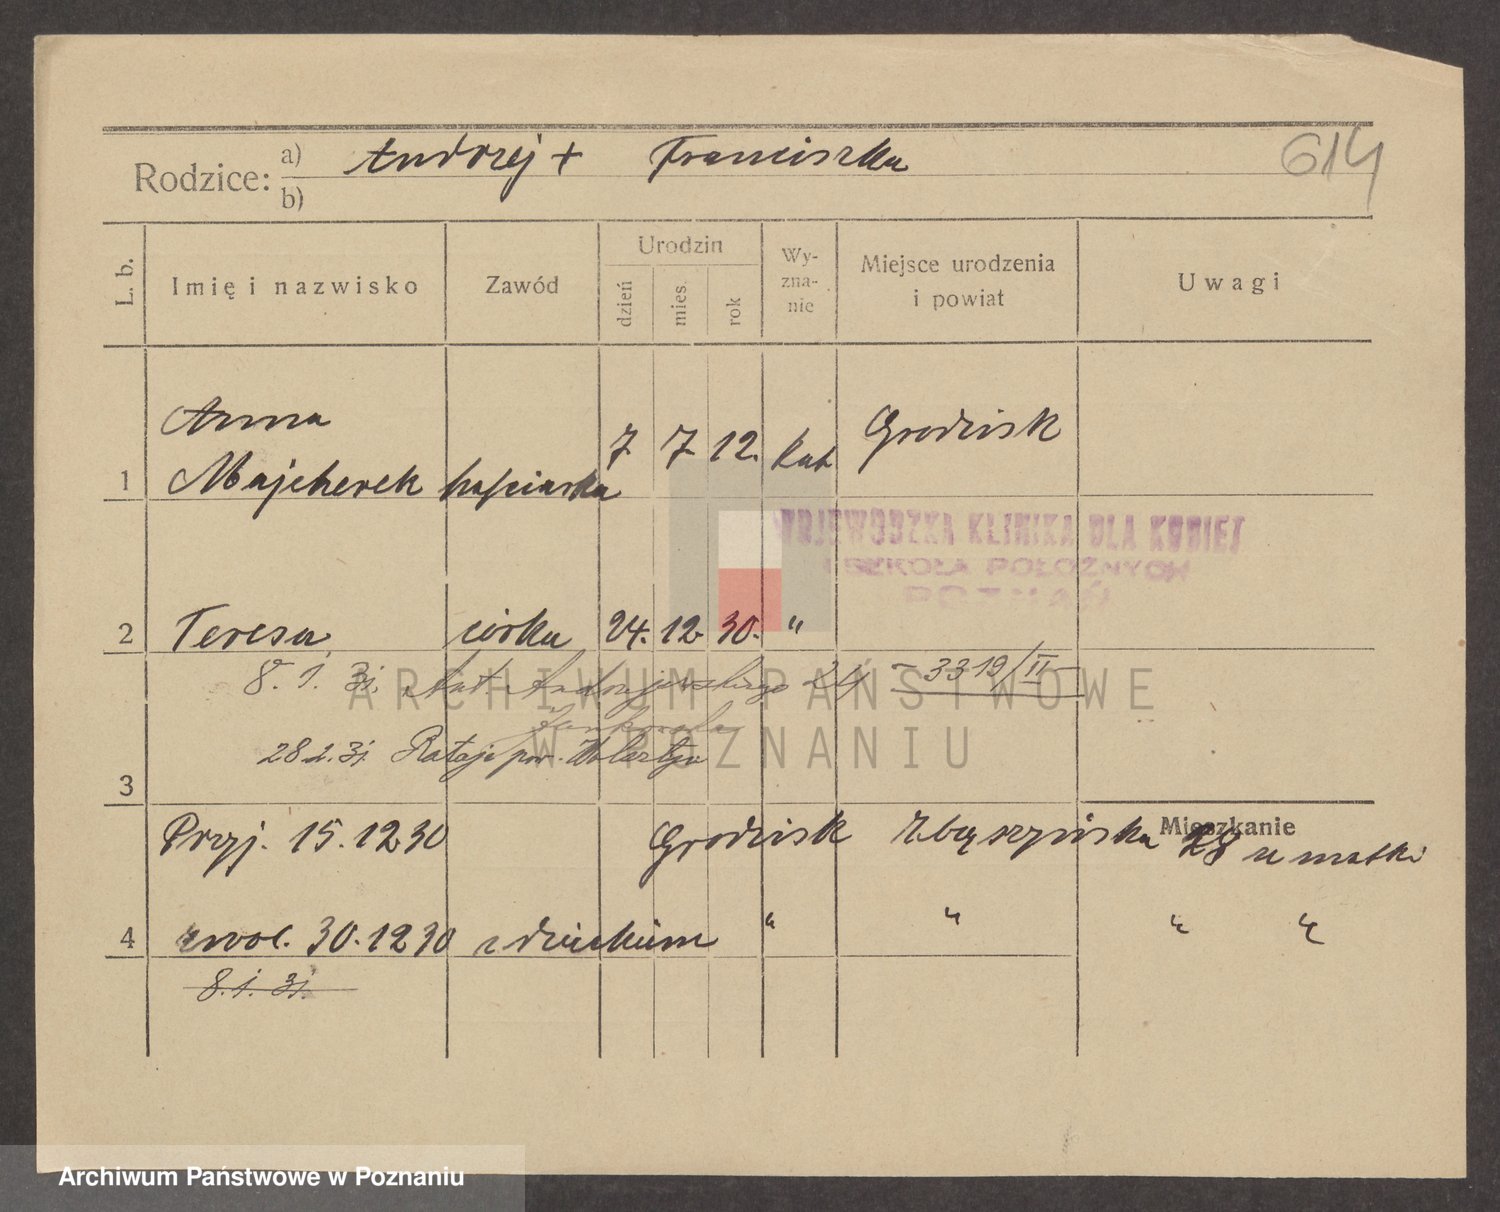 614
Rodzice: a) Andrzej + Franciszka
b)
L. b. Imię i nazwisko Zawód Urodzin dzień mies. rok Wy-zna-nie Miejsce urodzenia i powiat Uwagi
Anna
1 Majcherek hafciarka 7 7 12. kat Grodzisk
WOJEWÓDZKA KLINIKA DLA KOBIET
I SZKOŁA POŁOŻNYCH
POZNAŃ
2 Teresa córka 24. 12. 30. "
8. 1. 31. 24 - 3319/II
28.2.31. Rataje pow.
3
Mieszkanie
Przyj. 15. 12 30 Grodzisk Zbąszyńska 28 u matki
4 zwol. 30. 12 30 z dzieckiem " " " "
8. 1. 31.
ARCHIWUM PAŃSTWOWE
W POZNANIU
Archiwum Państwowe w Poznaniu